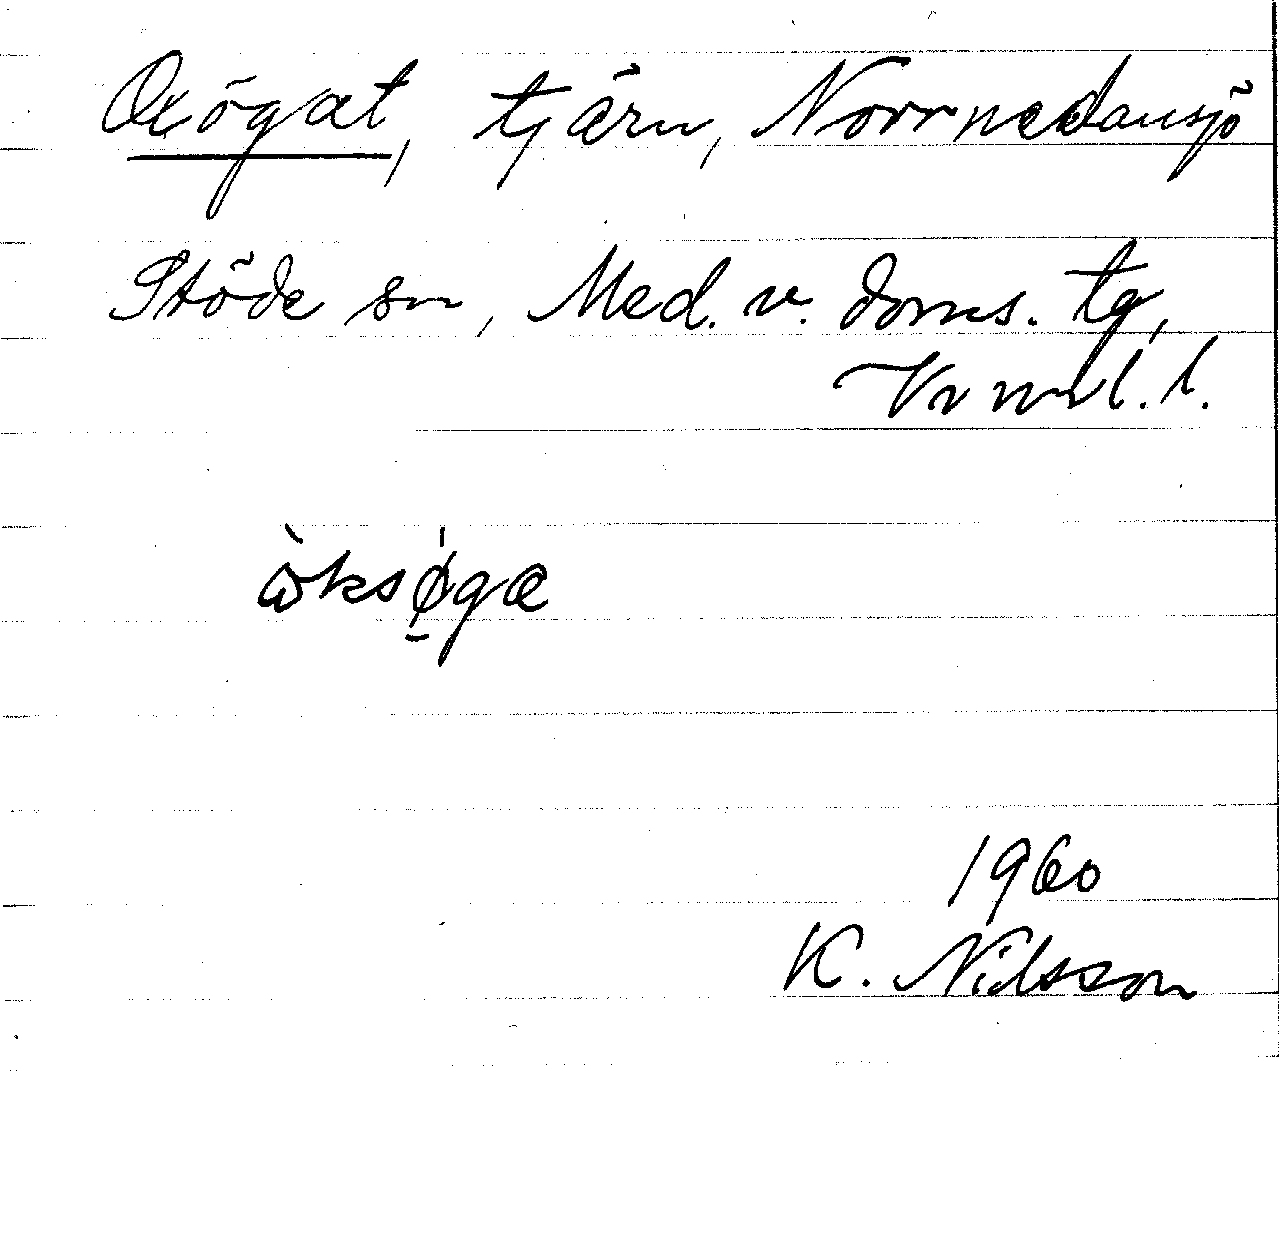 Oxögat, tjärn, Norrnedansjö
Stöde sn, Med. v. doms. tg,
Vrnrl. l.
òksø̠gæ
1960
K. Nilsson